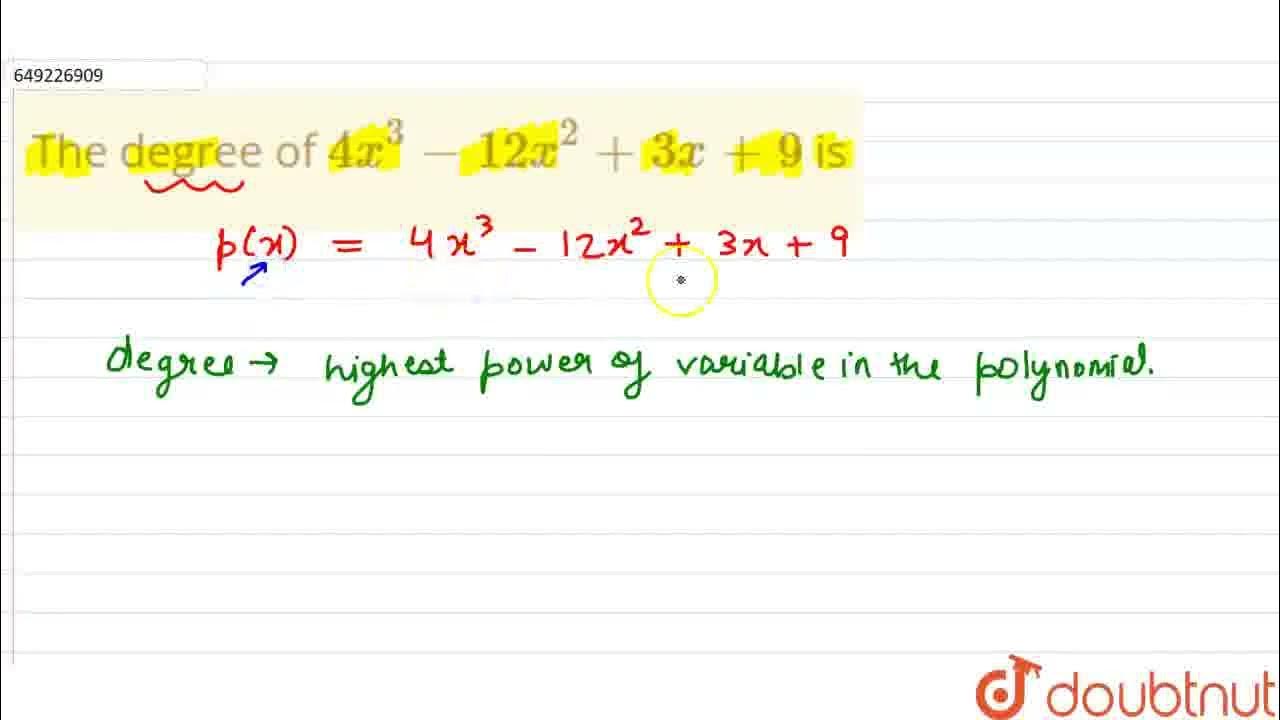 649226909
The degree of 4x³ − 12x² + 3x + 9 is
p(x) = 4x³ - 12x² + 3x + 9
degree → highest power of variable in the polynomial.
doubtnut